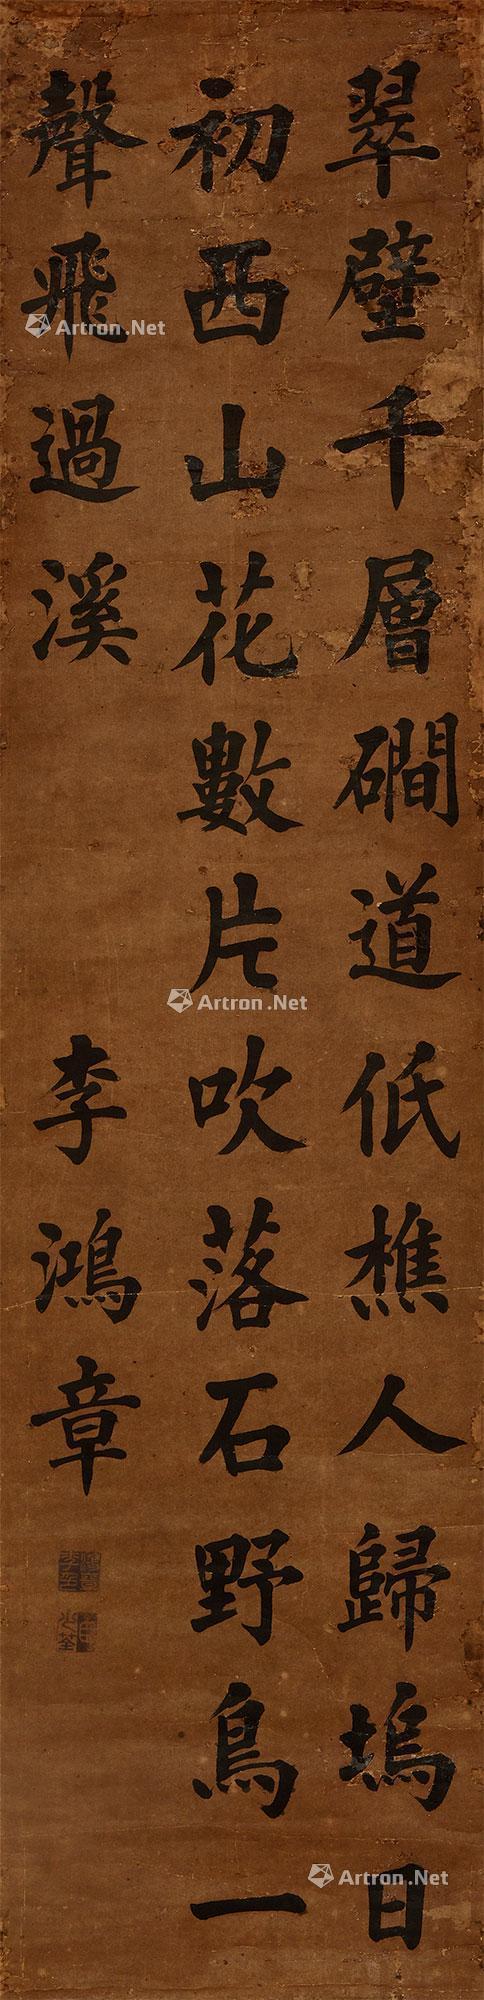 翠壁千層磵道低樵人歸塢日
初西山花數片吹落石野鳥一
聲飛過溪
李鴻章
Artron.Net
Artron.Net
Artron.Net